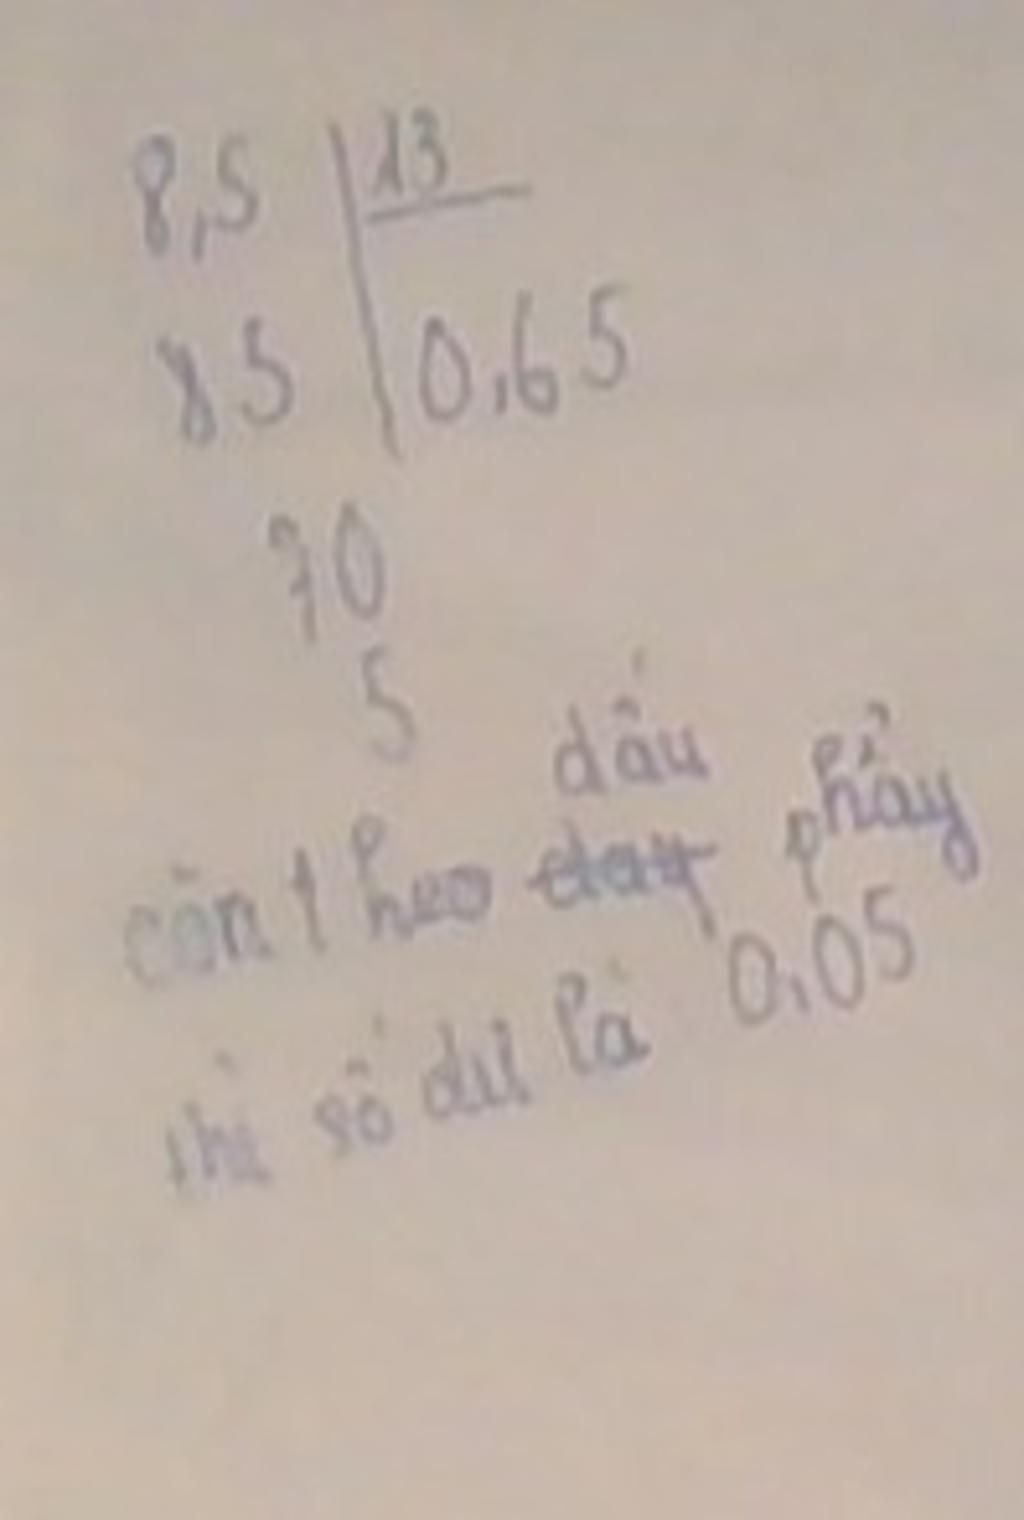 8,5 13
85 0,65
70
5
dấu
còn theo day phẩy
thì số dư là 0,05